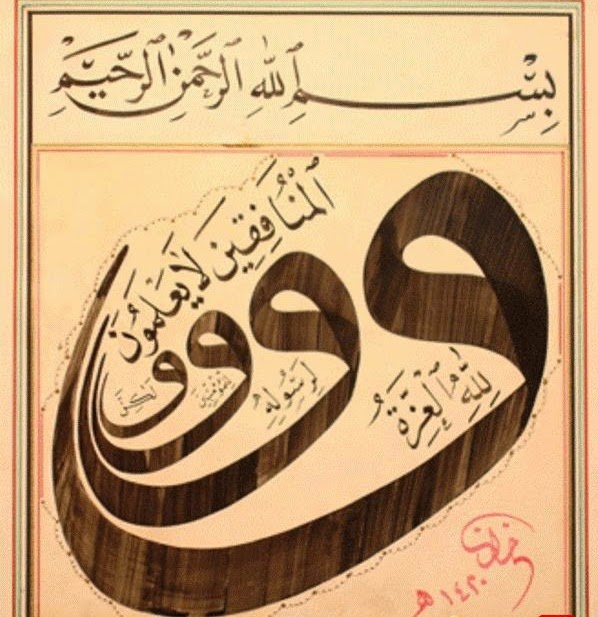 بِسْمِ اللهِ الرَّحْمٰنِ الرَّحِيْمِ
وَلِلّٰهِ الْعِزَّةُ
وَلِرَسُولِهِ
وَلِلْمُؤْمِنِينَ
وَلٰكِنَّ
الْمُنَافِقِينَ لَا يَعْلَمُونَ
١٤٢٠ هـ